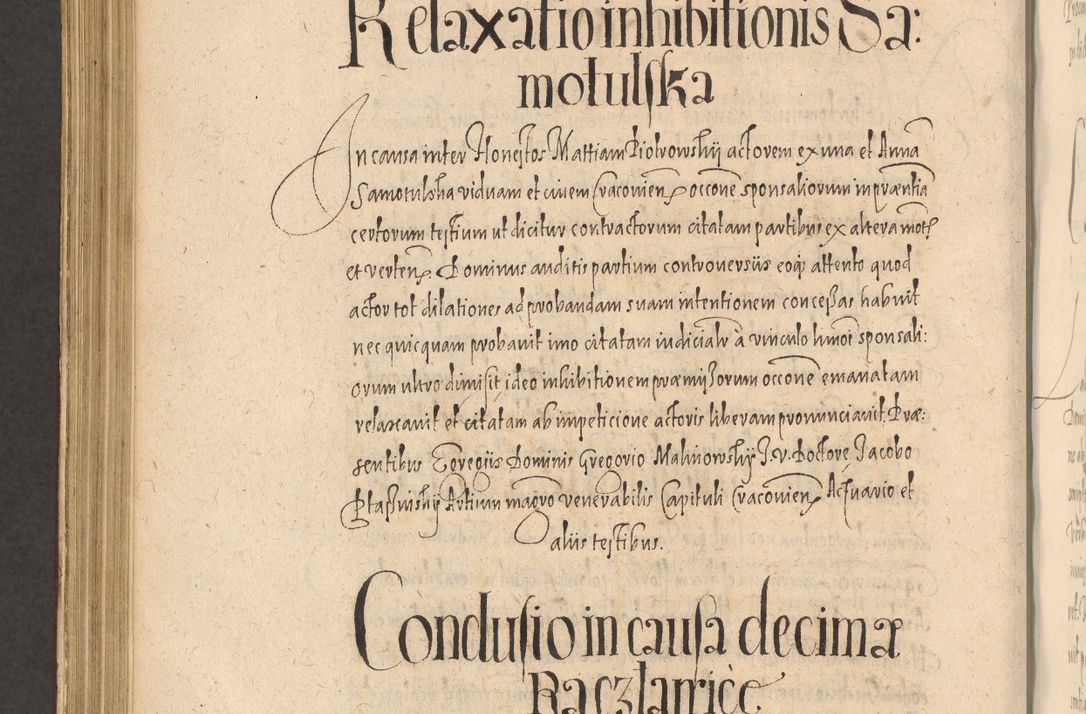 Relaxatio inhibitionis Sa:
motulska
In causa inter Honestos Mattiam Piotrowskij actorem ex una et Anna
Samotulska viduam et civem Cracovien occone sponsaliorum in præntia
certorum testium ut dicitur contractorum citatam partibus ex altera mot
et verten. Dominus auditis partium controversiis eoq attento quod
actor tot dilationes ad probandam suam intentionem concessas habuit
nec quicquam probavit imo citatam iudicialr a vinculo hmoi sponsali:
orum ultro dimisit ideo inhibitionem præmissorum occone emanatam
relaxavit et citatam ab impeticione actoris liberam pronunciavit. Præ:
sentibus Egregiis Dominis Gregorio Malinowskij J. v. Doctore Jacobo
Artium magro venerabilis Capituli Cracovien Actuario et
aliis testibus.
Conclusio in causa decimæ
Raczlawice